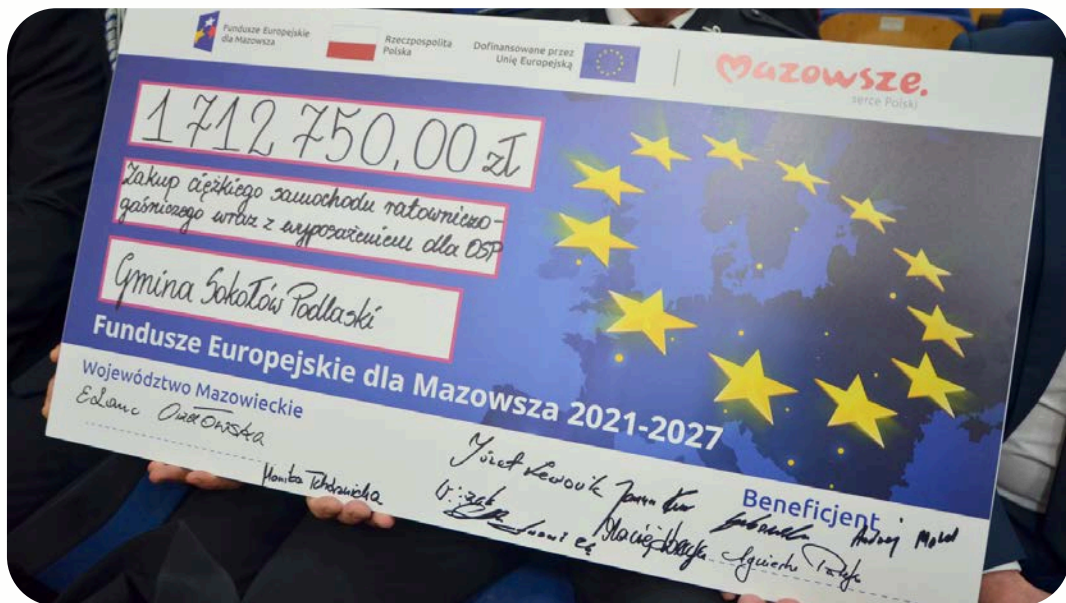 Fundusze Europejskie
dla Mazowsza
Rzeczpospolita
Polska
Dofinansowane przez
Unię Europejską
Mazowsze.
serce Polski
1 712 750,00 zł
Zakup ciężkiego samochodu ratowniczo-
gaśniczego wraz z wyposażeniem dla OSP
Gmina Sokołów Podlaski
Fundusze Europejskie dla Mazowsza 2021-2027
Województwo Mazowieckie
Beneficjent
Monika Tchórznicka
Józef
Andrzej
Maciej
Agnieszka